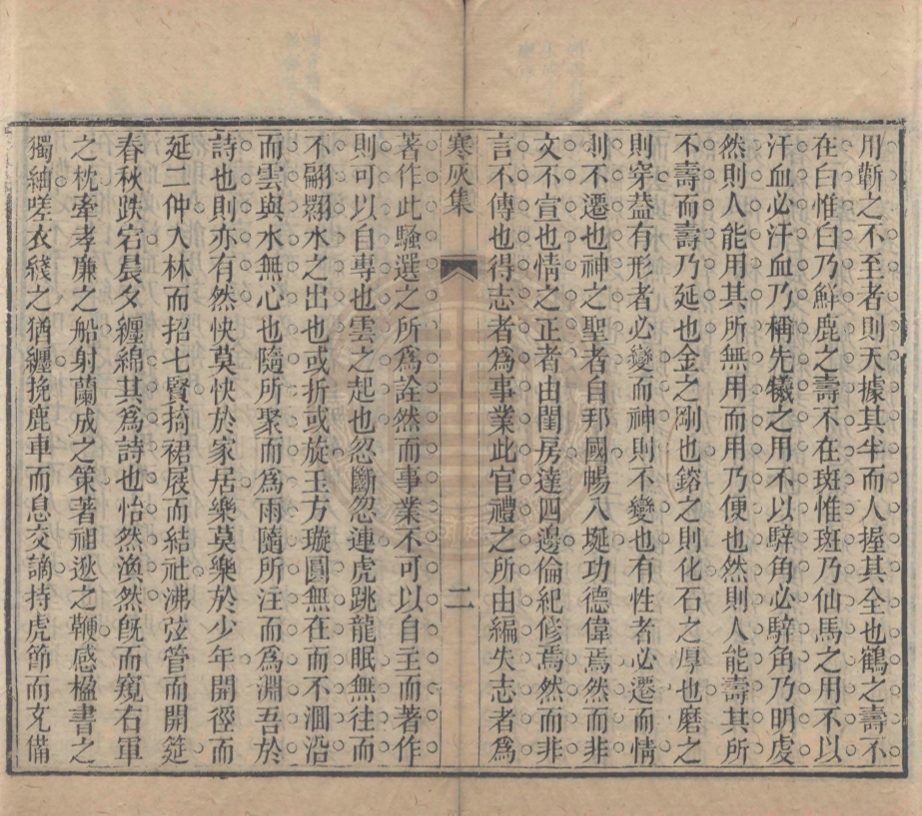 用靳之不至者則天據其半而人握其全也鶴之壽不
在白惟白乃鮮鹿之壽不在斑惟斑乃仙馬之用不以
汗血必汗血乃稱先犧之用不以騂角必騂角乃明虔
然則人能用其所無用而用乃便也然則人能壽其所
不壽而壽乃延也金之剛也鎔之則化石之厚也磨之
則穿葢有形者必變而神則不變也有性者必遷而情
則不遷也神之聖者自邦國暢八埏功德偉焉然而非
文不宣也情之正者由閨房達四邊倫紀修焉然而非
言不傳也得志者爲事業此官禮之所由編失志者爲
寒灰集
二
著作此騷選之所爲詮然而事業不可以自主而著作
則可以自專也雲之起也忽斷忽連虎跳龍眠無往而
不翩翾水之出也或折或旋玉方璇圓無在而不洄沿
而雲與水無心也隨所聚而爲雨隨所注而爲淵吾於
詩也則亦有然快莫快於家居樂莫樂於少年開徑而
延二仲入林而招七賢掎裙屐而結社沸弦管而開筵
春秋跌宕晨夕纏綿其爲詩也怡然渙然旣而窺右軍
之枕牽孝廉之船射蘭成之策著祖逖之鞭感楹書之
獨紬嗟衣綫之猶纏挽鹿車而息交謫持虎節而充備